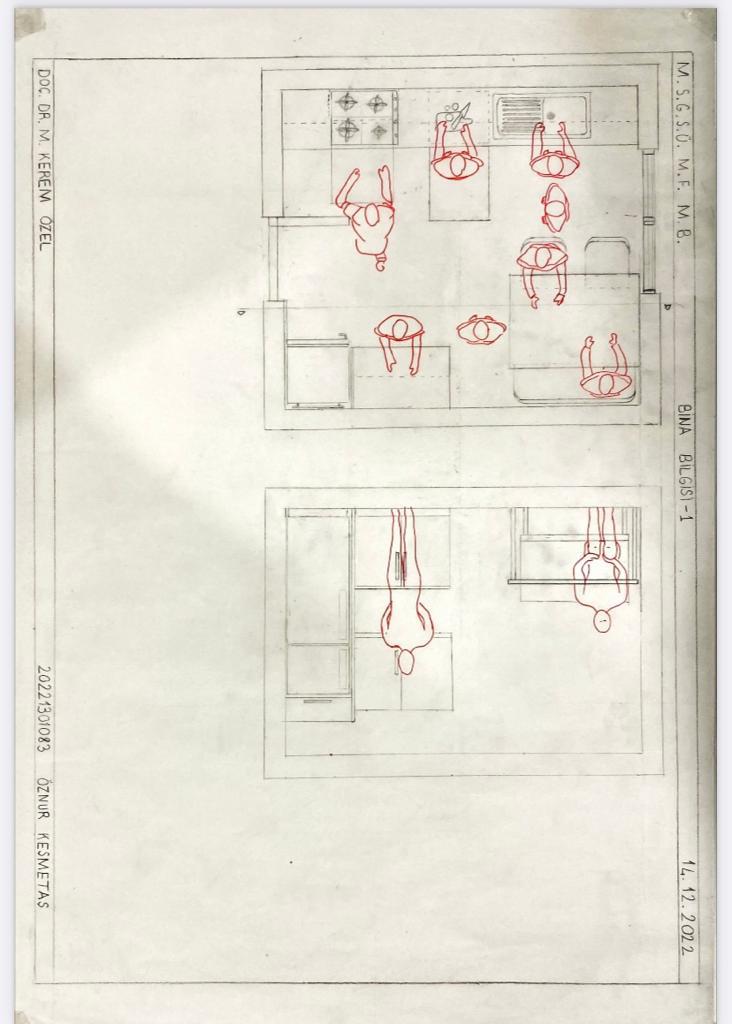 M.S.G.S.Ü. M.F. M.B.
BİNA BİLGİSİ-1
14.12.2022
DOÇ. DR. M. KEREM ÖZEL
20221301083
ÖZNUR KESMETAS